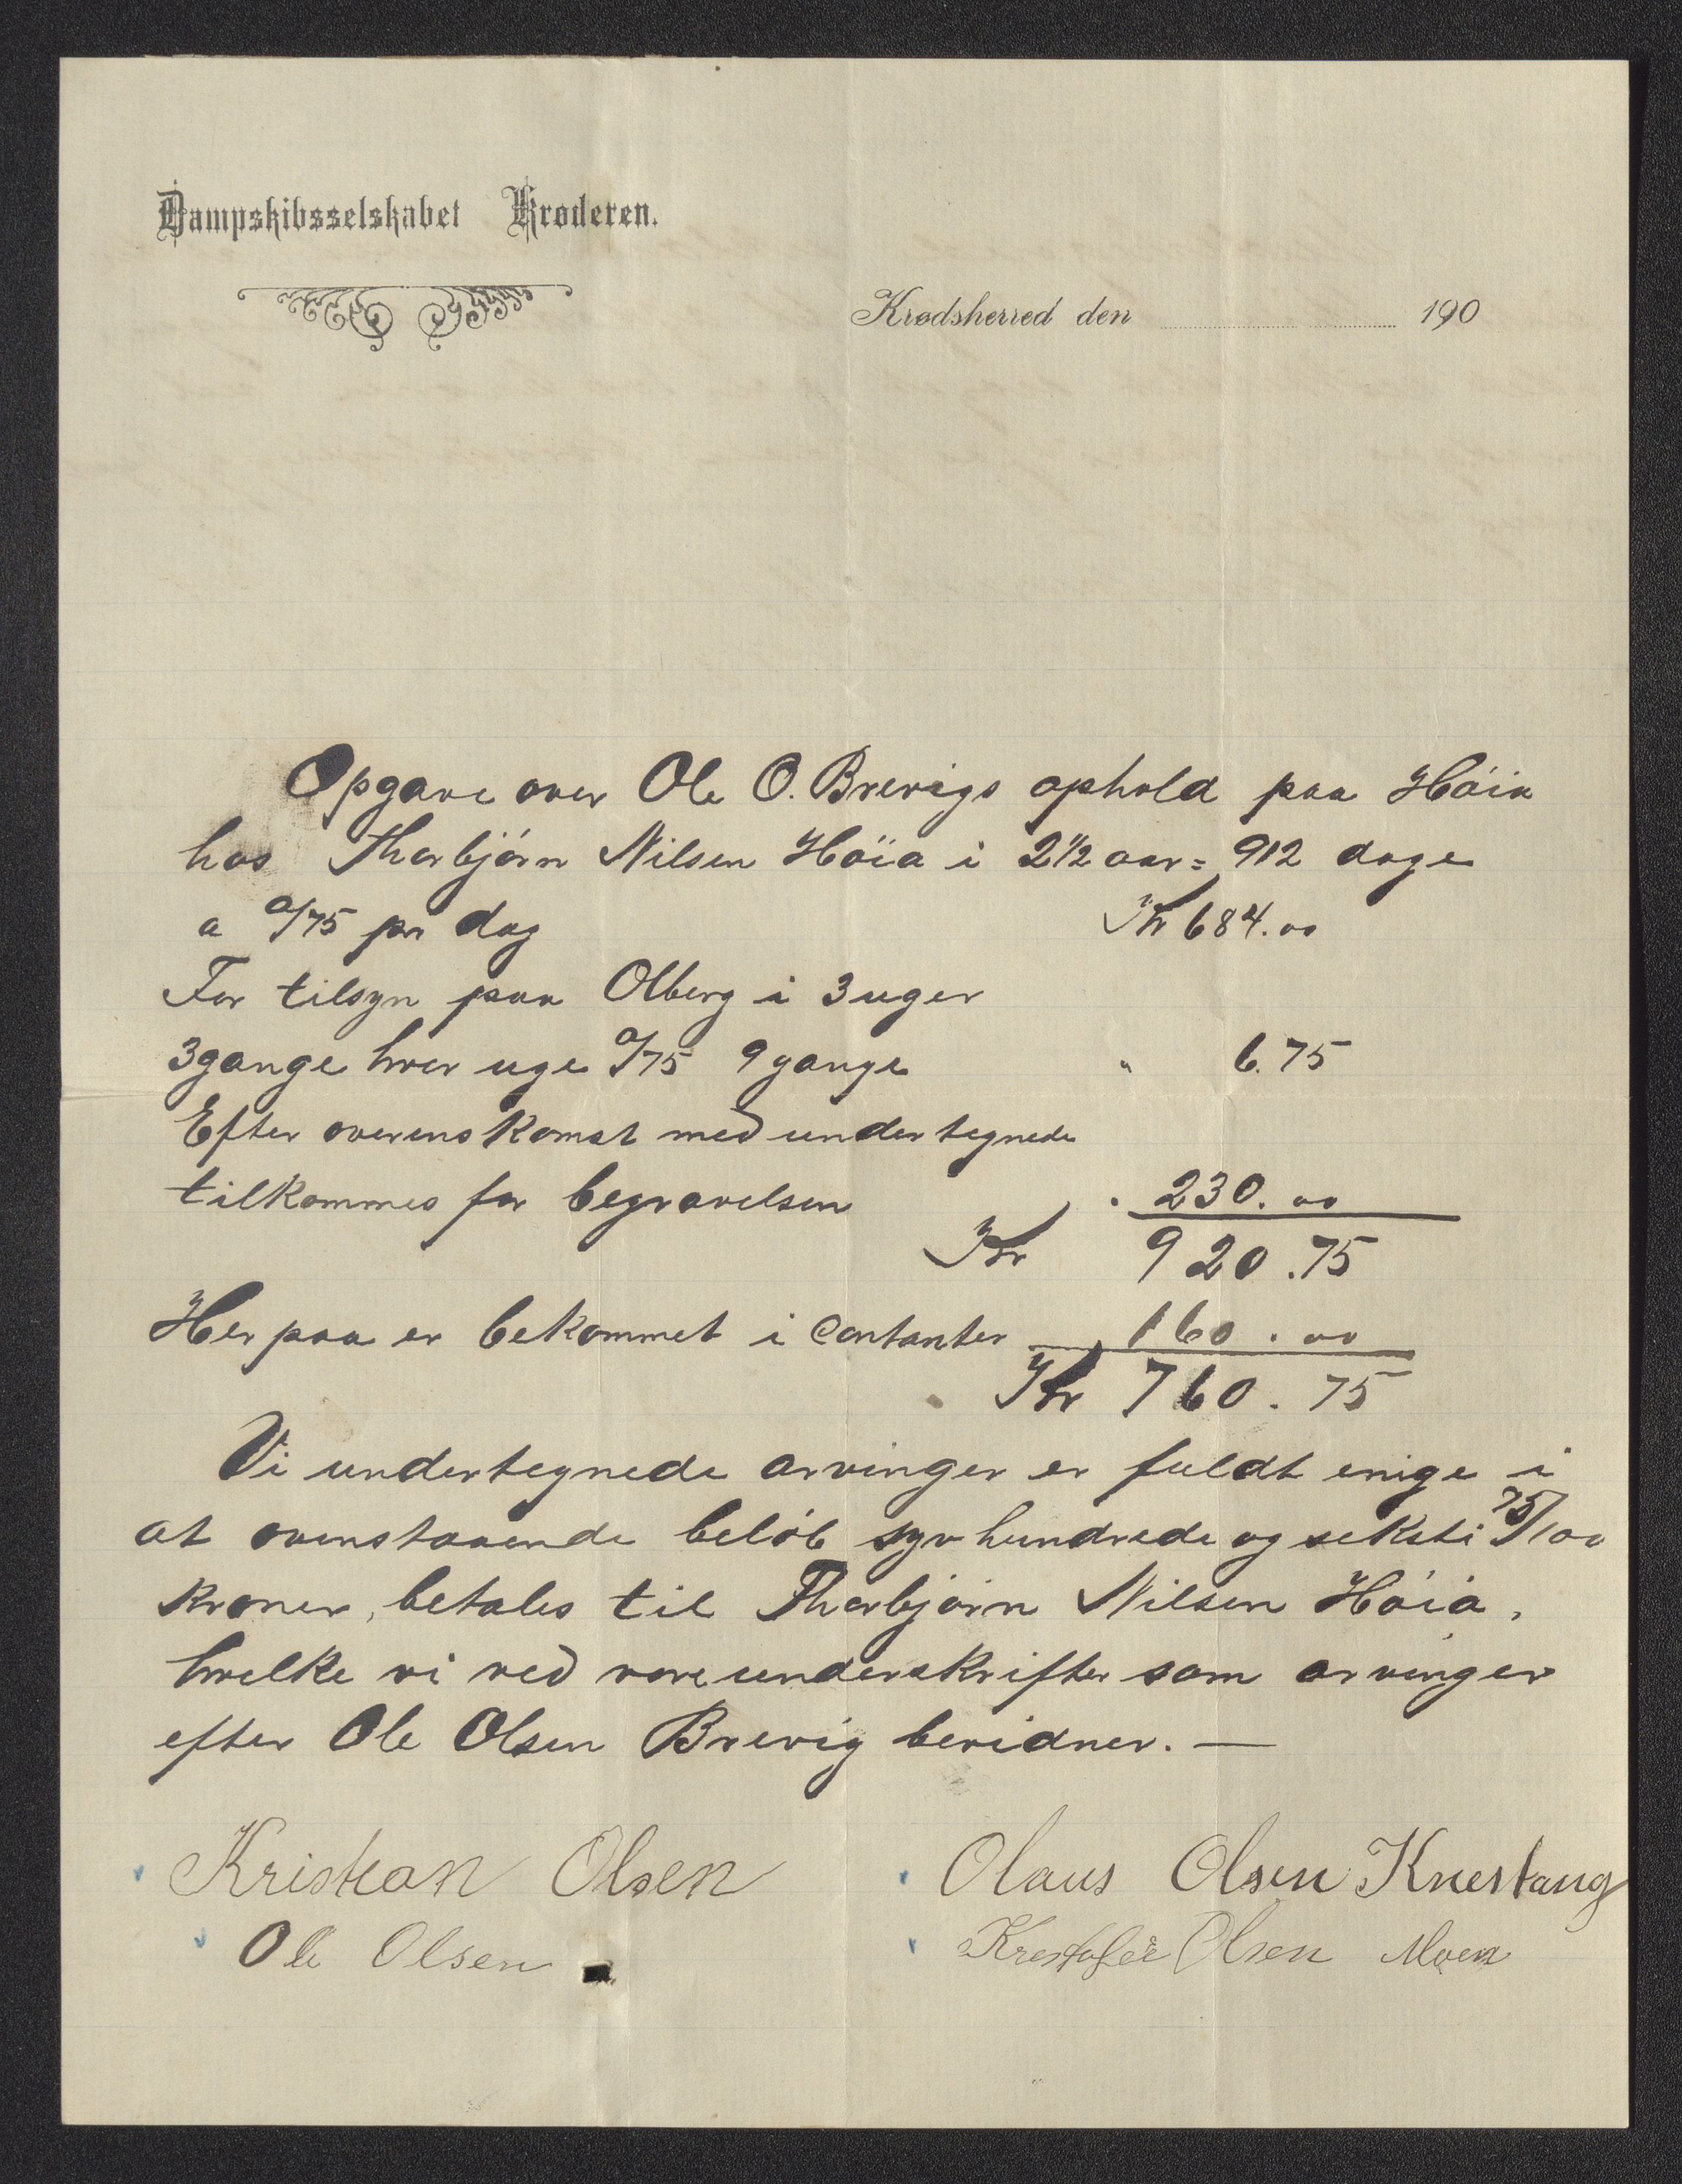 Dampskibsselskabet Krøderen.
Krødsherred den 190
Opgave over Ole O. Brevigs ophold paa Høia
hos Thorbjørn Nilsen Høia i 2 1/2 aar = 912 dage
a 0/75 pr dag Kr 684.00
For tilsyn paa Olberg i 3 uger
3 gange hver uge 0/75 9 gange " 6.75
Efter overenskomst med undertegnede
tilkommes for begravelsen " 230.00
Kr 920.75
Herpaa er bekommet i Contanter 160.00
Kr 760.75
Vi undertegnede arvinger er fuldt enige i
at ovenstaaende beløb syv hundrede og seksti 75/100
kroner, betales til Thorbjørn Nilsen Høia,
hvilke vi ved vore underskrifter som arvinger
efter Ole Olsen Brevig bevidner. —
Kristian Olsen Olaus Olsen Knestang
Ole Olsen Olsen Moen